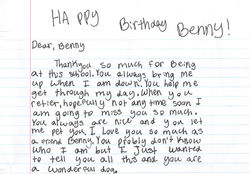 HAPPY Birthday Benny!
Dear, Benny
Thankyou so much for being
at this school. You always bring me
up when I am down. You help me
get through my day. When you
retier, hopefully not any time soon I
am going to miss you so much.
You always are nice and you let
me pet you. I love you so much as
a Benny. You probly don't know
who I am but I Just wanted
to tell you all ths and you are
a wonderful dog.